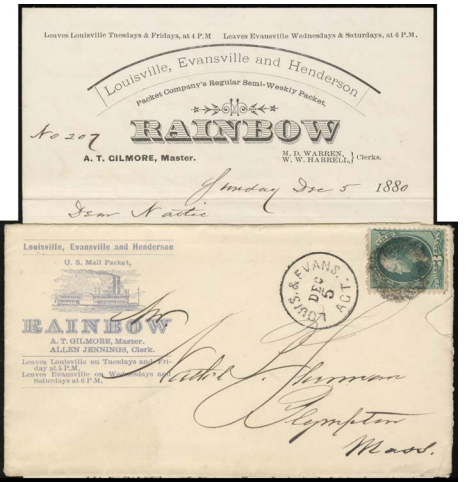 Leaves Louisville Tuesdays & Fridays, at 4 P.M   Leaves Evansville Wednesdays & Saturdays, at 6 P.M.
Louisville, Evansville and Henderson
Packet Company's Regular Semi-Weekly Packet,
RAINBOW
No 207
A. T. GILMORE, Master.
M. D. WARREN,
W. W. HARRELL, } Clerks.
Sunday Dec 5 1880
Dear Nattie
Louisville, Evansville and Henderson
U. S. Mail Packet,
RAINBOW
A. T. GILMORE, Master.
ALLEN JENNINGS, Clerk.
Leaves Louisville on Tuesday and Fri-
day at 5 P.M.
Leaves Evansville on Wednesdays and
Saturdays at 6 P.M.
LOUIS. & EVANS. AGT.
DEC
5
3
Nattie
Plympton
Mass.